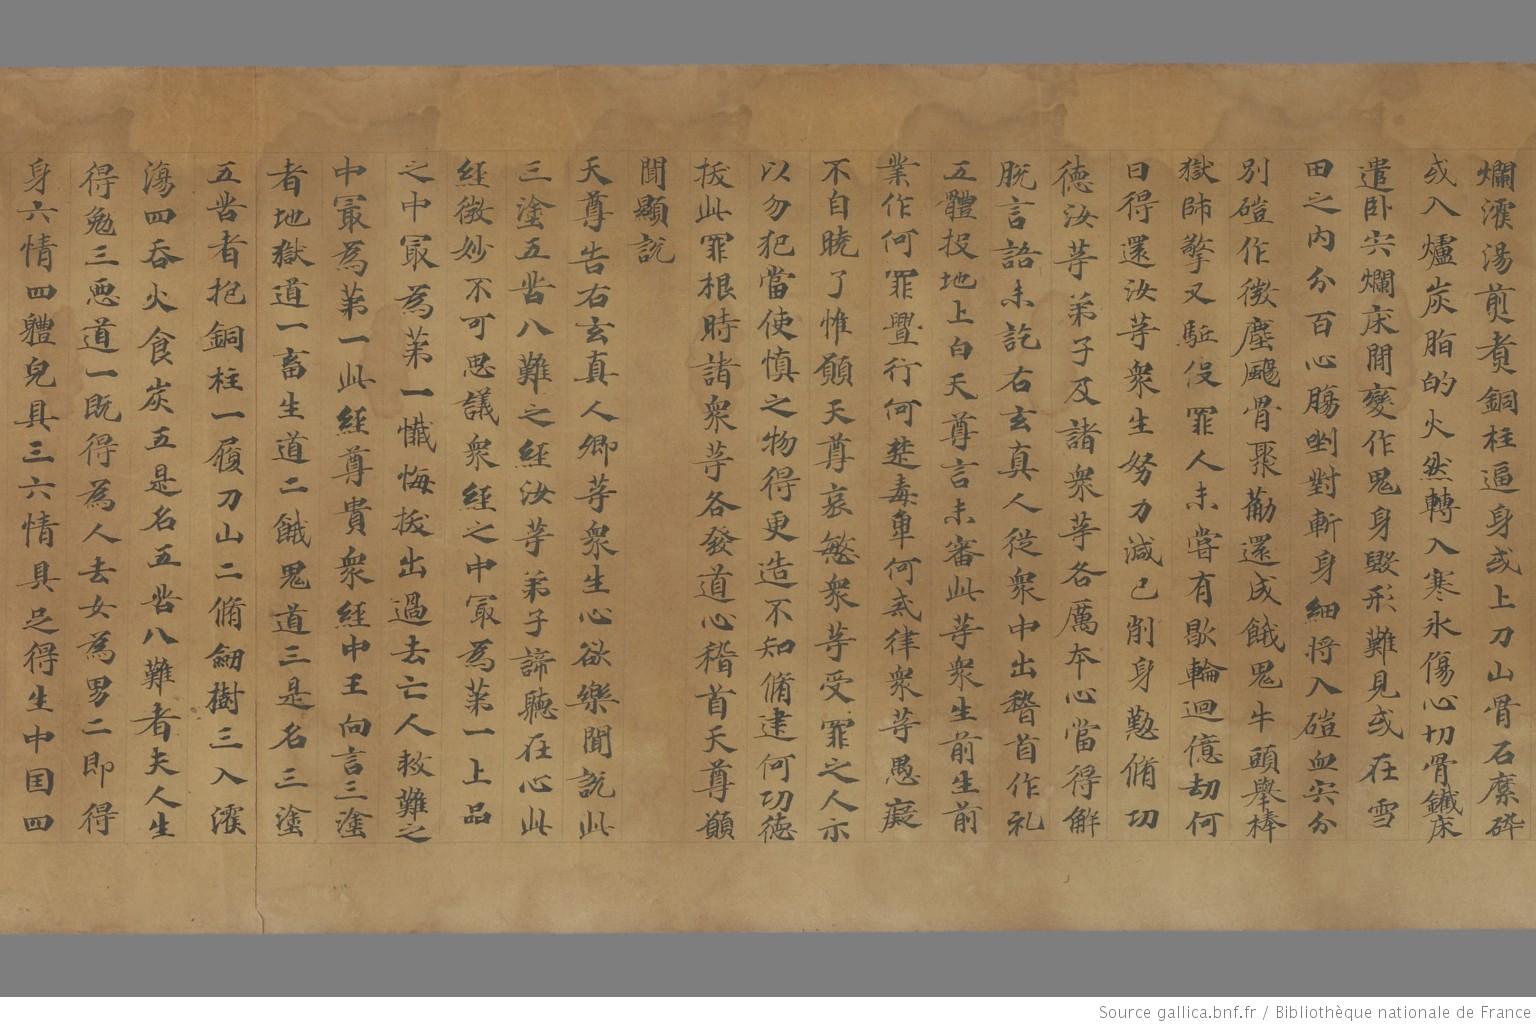 爛濩湯煎煑銅柱逼身或上刀山骨石縻碎
或入爐炭脂的火然轉入寒氷傷心切骨鐵床
遣卧宍爛床開變作鬼身毀形難見或在雪
田之内分百心膓剉對斬身細將入磑血宍分
別磑作微塵颺骨聚勸還成餓鬼牛頭舉棒
獄師擎叉駈役罪人未嘗有歇輪迴億劫何
日得還汝䒭衆生努力減己削身懃脩切
徳汝䒭弟子及諸衆䒭各厲夲心當得解
脱言語未訖右玄真人從衆中出稽首作礼
五體投地上白天尊言未審此䒭衆生前生前
業作何罪舋行何楚毒犯何戒律衆䒭愚癡
不自曉了惟願天尊哀慜衆䒭受罪之人示
以勿犯當使慎之物得更造不知脩建何功徳
拔此罪根時諸衆䒭各發道心稽首天尊願
聞顯説
天尊告右玄真人卿䒭衆生心欲樂聞説此
三塗五苦八難之經汝䒭弟子諦聽在心此
經微妙不可思議衆經之中冣為第一上品
之中冣為第一懴悔拔出過去亡人救難之
中冣為第一此經尊貴衆經中王向言三塗
者地獄道一畜生道二餓鬼道三是名三塗
五苦者抱銅柱一履刀山二脩劒樹三入濩
湯四吞火食炭五是名五苦八難者夫人生
得勉三惡道一既得為人去女為男二即得
身六情四體皃具三六情具足得生中国四